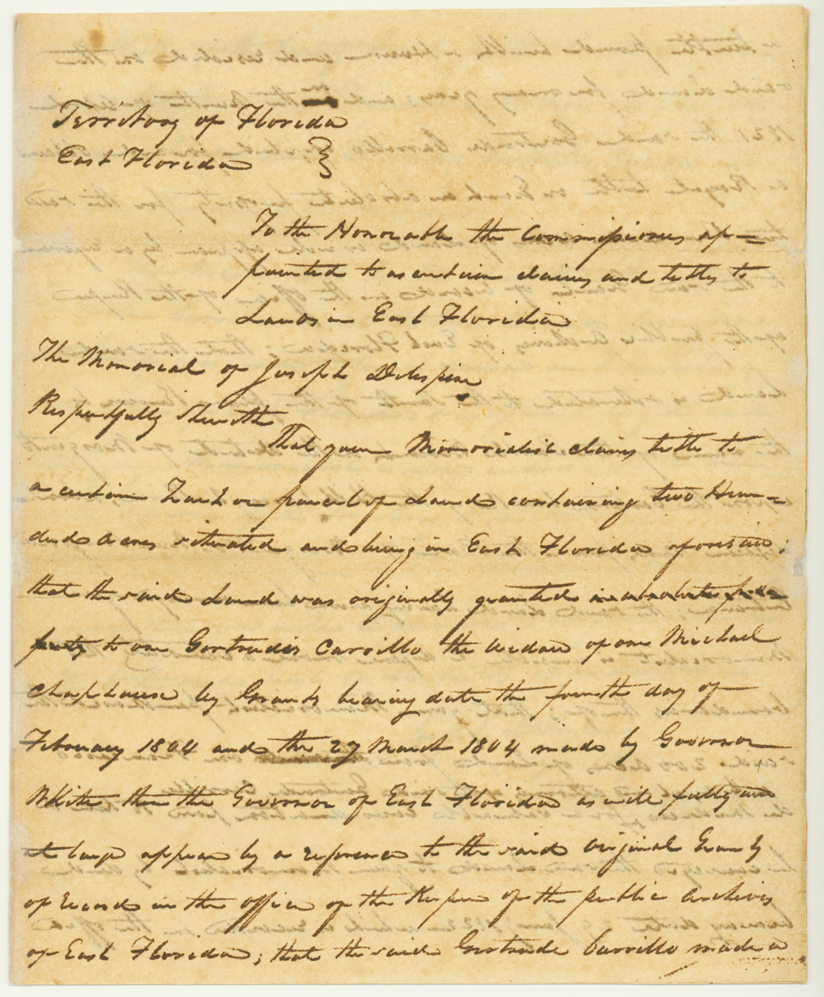 Territory of Florida
East Florida }
To the Honorable the Commissioners ap=
pointed to ascertain claims and titles to
Lands in East Florida
The Memorial of Joseph Delespine
Respectfully Sheweth
That your Memorialist claims title to
a certain Tract or parcel of Land containing two Hun=
dred Acres situated and being in East Florida aforesaid;
that the said Land was originally granted in absolute pro
perty to one Gertrudis Carrillo the widow of one Michael
Chaphouse by Grants bearing date the fourth day of
February 1804 and the 27 March 1804 made by Governor
White then the Governor of East Florida as will fully and
at large appear by a reference to the said original Grants
of Record in the office of the Keeper of the public Archives
of East Florida; that the said Gertrude Carrillo made a